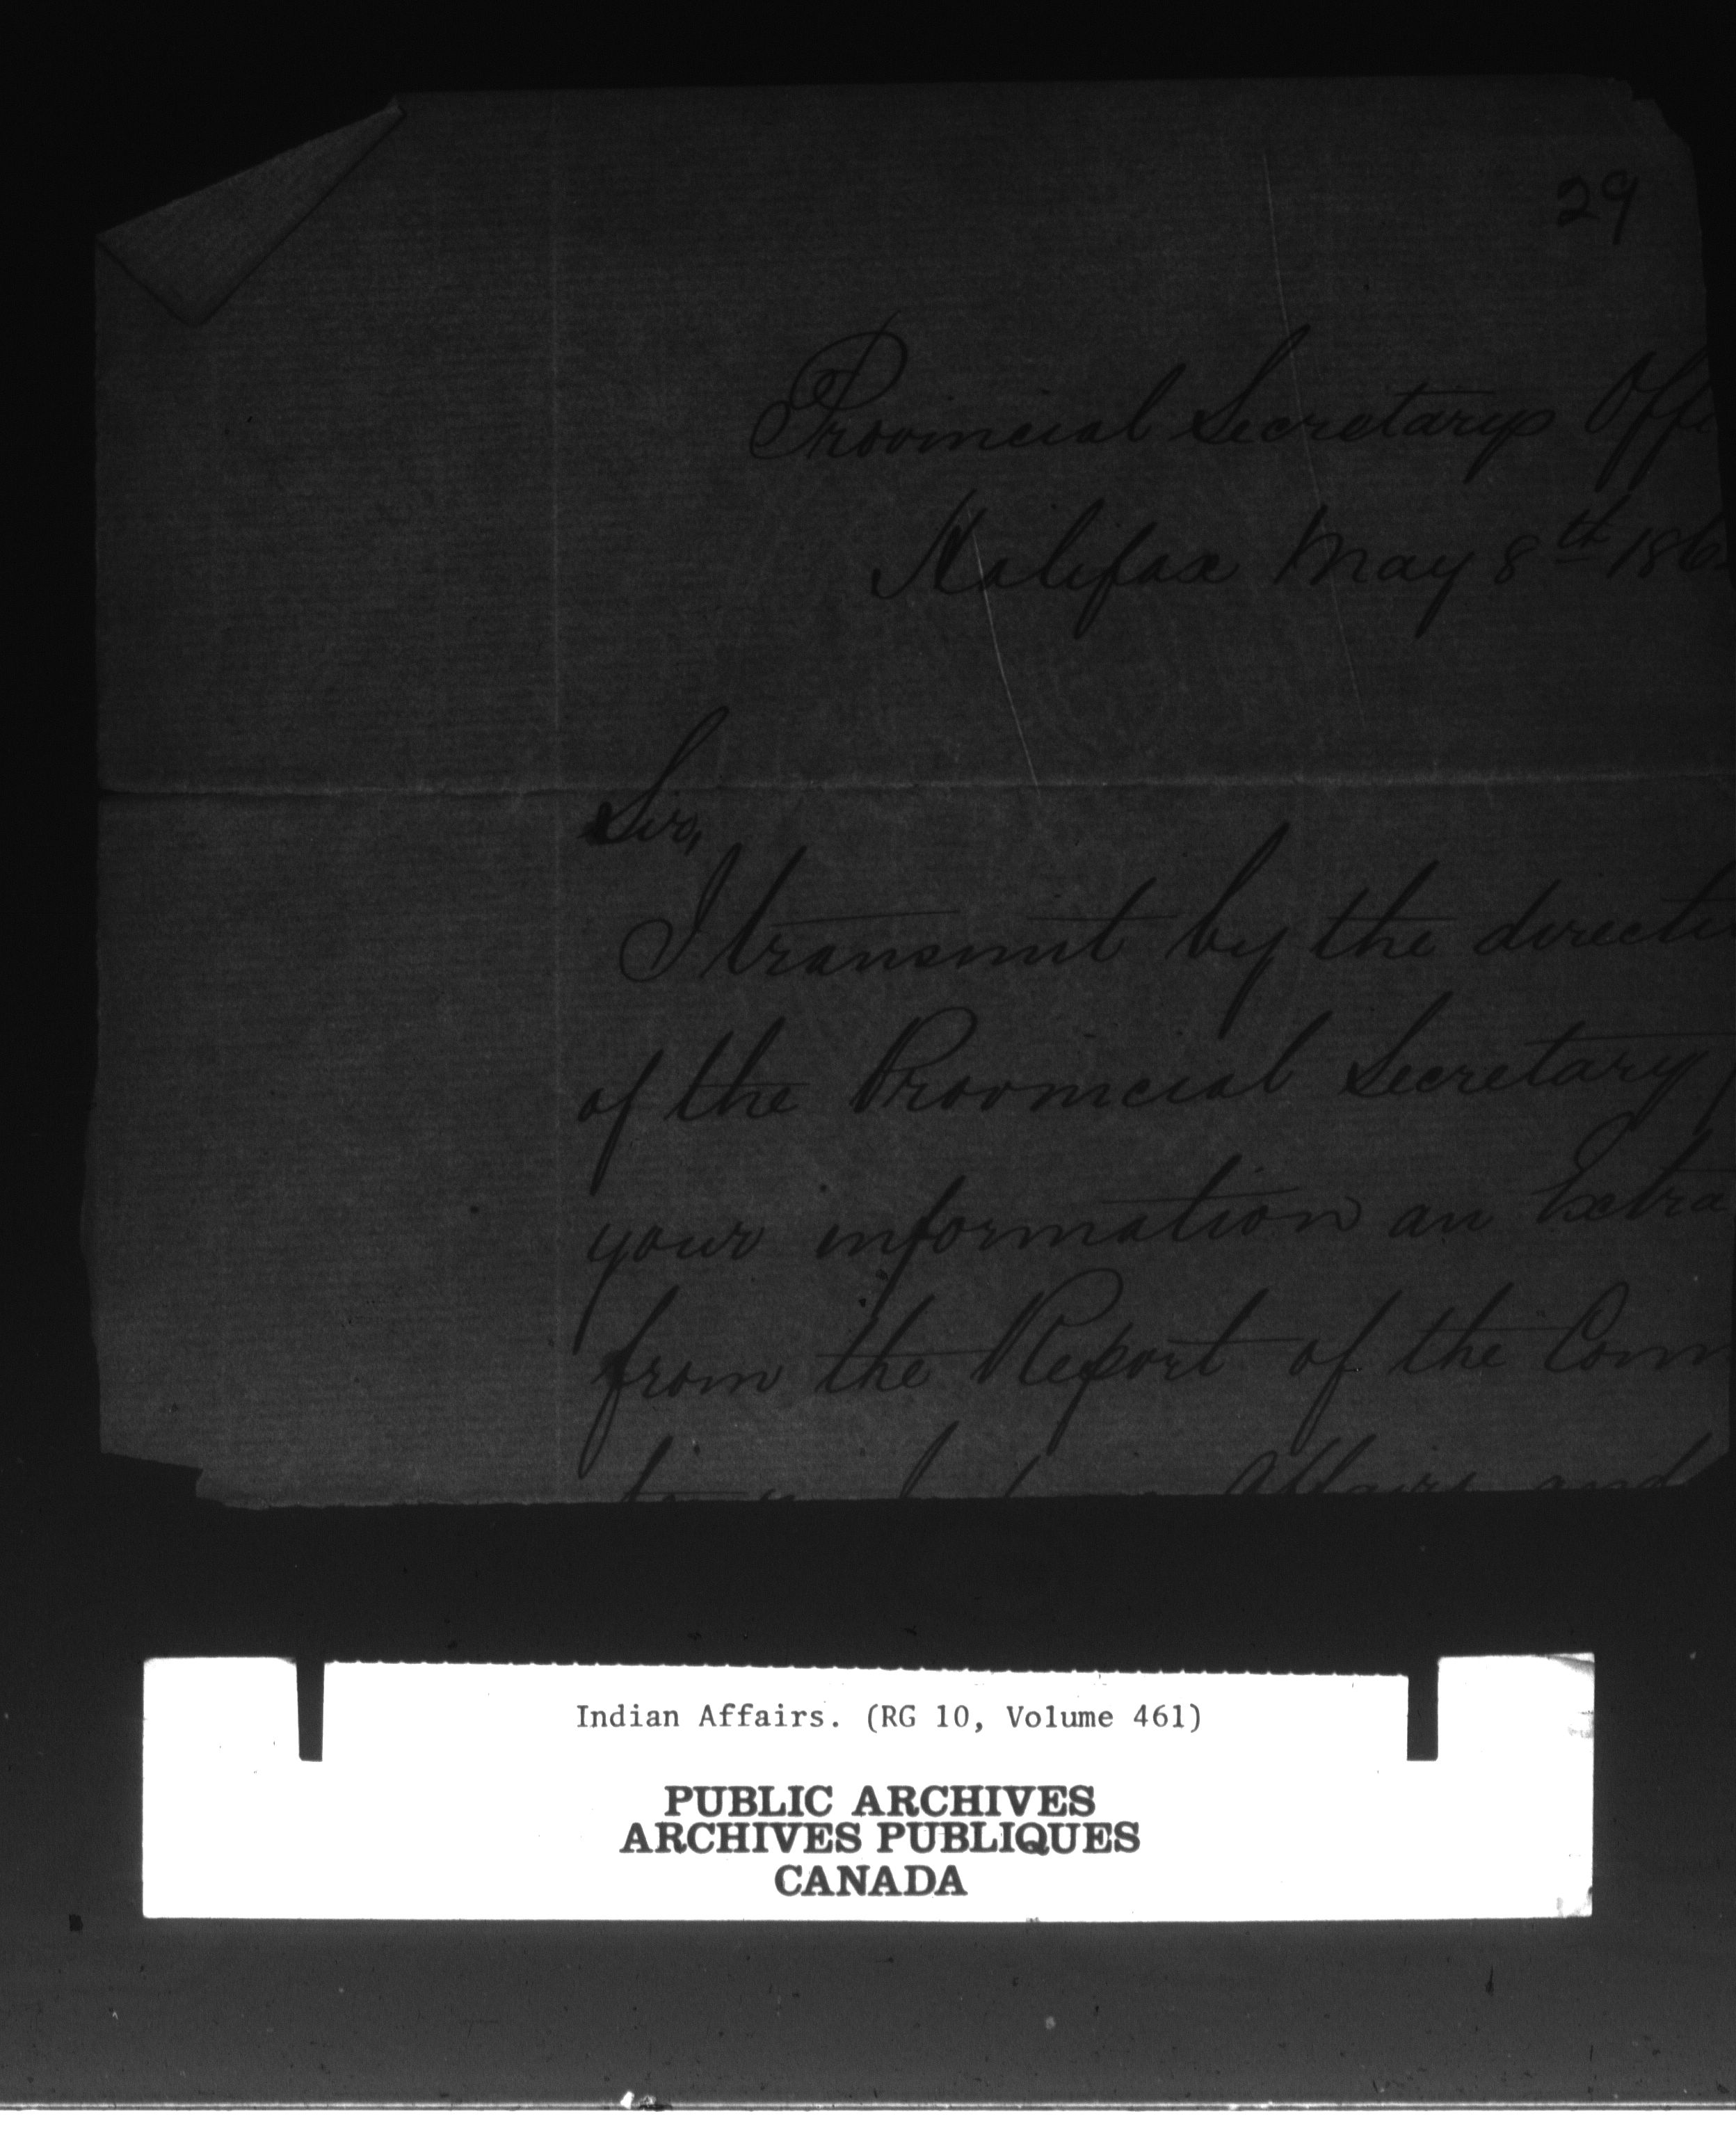 29
Provincial Secretarys Offi
Halifax May 8th 186
Sir,
I transmit by the directi
of the Provincial Secretary f
your information an Extra
from the Report of the Com
Affairs and
Indian Affairs. (RG 10, Volume 461)
PUBLIC ARCHIVES
ARCHIVES PUBLIQUES
CANADA